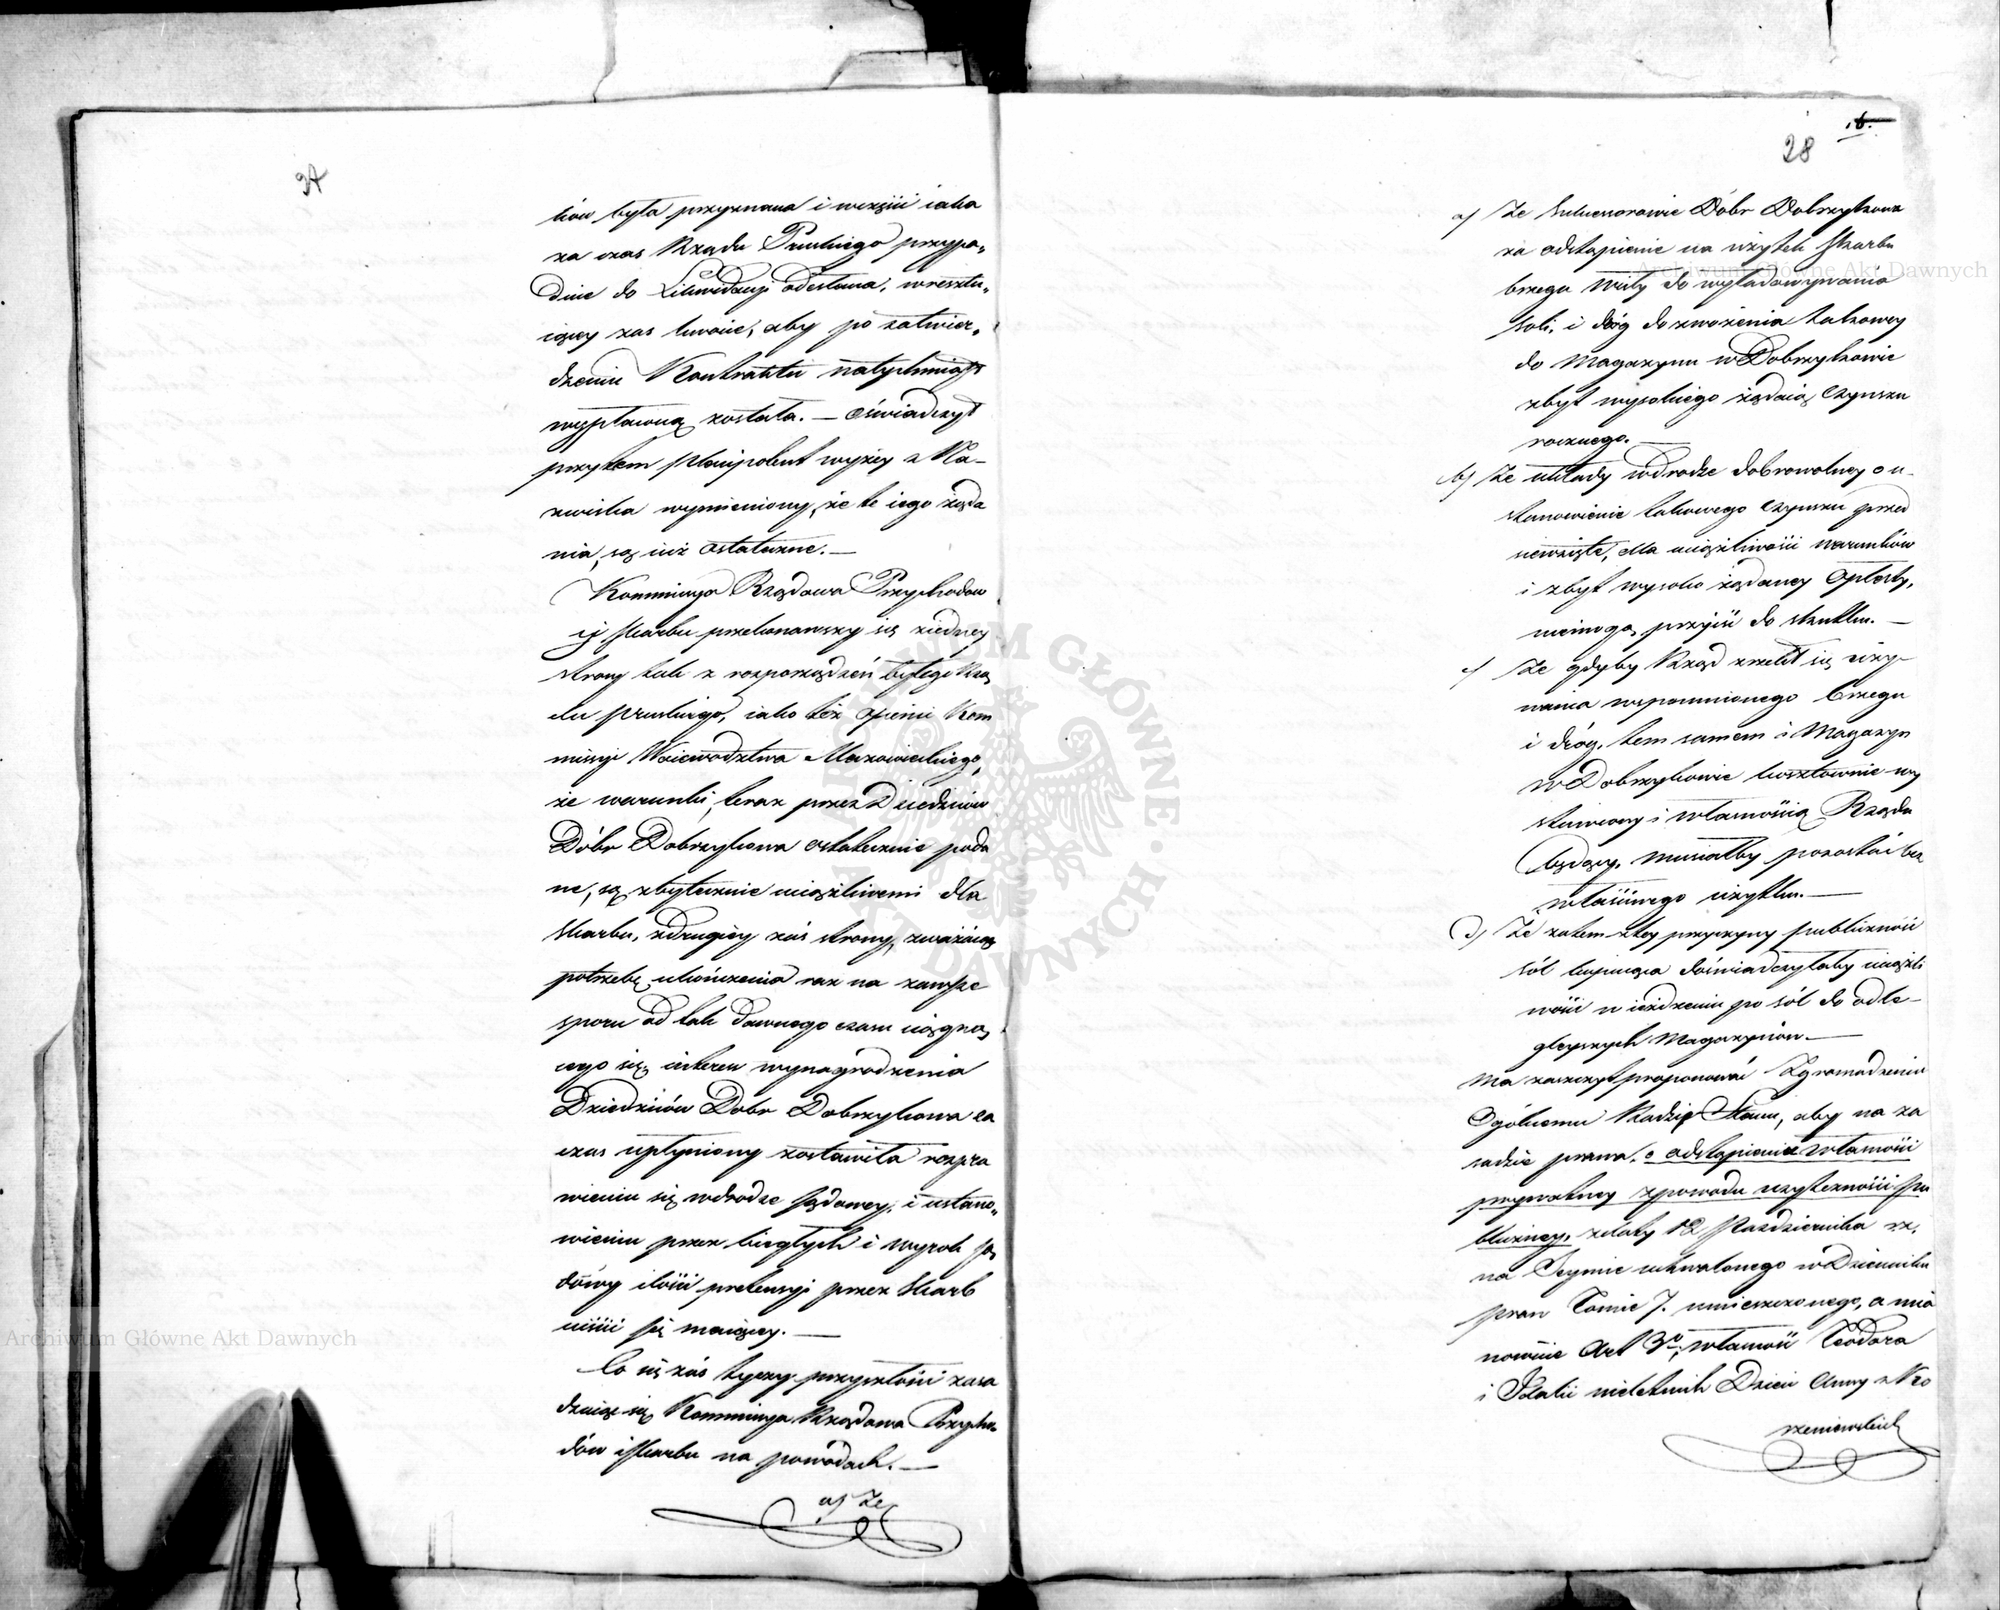 27
ków była przyznana i w części iako
za czas Rządu Pruskiego przypa„
daie do Likwidacyi odesłana, w resztu„
iącey zaś kwocie, aby po zatwier„
dzeniu Kontraktu natychmiast
wypłaconą została. — Oświadczył
przytem Plenipotent wyżey z Na-
zwiska wymieniony, że te iego żąda
nia, są iuż ostateczne. —
Kommissya Rządowa Przychodow
y Skarbu przekonawszy się z iedney
strony tak z rozporządzeń byłego Rzą
du Pruskiego, iako też opinii Kom
missyi Woiewodztwa Mazowieckiego,
że warunki, teraz przez Dziedziców
Dóbr Dobrzykowa ostatecznie poda
ne, są zbytecznie uciążliwemi dla
Skarbu, z drugiey zaś strony, zważaiąc
potrzebę ukończenia raz na zawsze
sporu od tak dawnego czasu ciągną
cego się, interes wynagrodzenia
Dziedziców Dobr Dobrzykowa za
czas upłyniony zostawiła rozpra
wieniu się w drodze sądowey, i ustano„
wieniu przez biegłych i wyrok są
dowy ilości pretensyi przez Skarb
uiścić się maiącey. —
Co się zaś tyczy przyszłości zasa
dzaiąc się Kommissya Rządowa Przycho
dów i Skarbu na powodach. —
a/ Że
28
a/ Że Sukcessorowie Dóbr Dobrzykowa
za odstąpienie na użytek Skarbu
brzegu Wisły do wyładowywania
soli, i dróg do zwożenia takowey
do Magazynu w Dobrzykowie
zbyt wysokiego żądaią Czynszu
rocznego. —
b/ Że układy w drodze dobrowolney o u-
stanowienie takowego Czynszu przed
siewzięte, dla uciążliwości warunków
i zbyt wysoko żądaney Opłaty,
niemogą przyiść do skutku. —
c/ Że gdyby Rząd zrzekł się uży-
wania wspomnionego brzegu
i dróg, tem samem i Magazyn
w Dobrzykowie kosztownie wy
stawiony i własnością Rządu
będący, musiałby pozostać bez
właściwego użytku. —
d/ Że zatem z tey przyczyny publiczność
sól kupuiąca doświadczyłaby uciążli
wości w ieżdzeniu po sól do odle-
gleyszych Magazynów. —
Ma zaszczyt proponować Zgromadzeniu
Ogólnemu Rady Stanu, aby na za
sadzie prawa, o odstąpieniu własności
prywatney z powodu użyteczności pu
bliczney, z daty 12 Października rz.
na Seymie uchwalonego w Dzienniku
praw Tomie 7. umieszczonego, a mia
nowicie Art 3º, własność Teodora
i Idalii nieletnich Dzieci Anny z Kro
szeniewskich